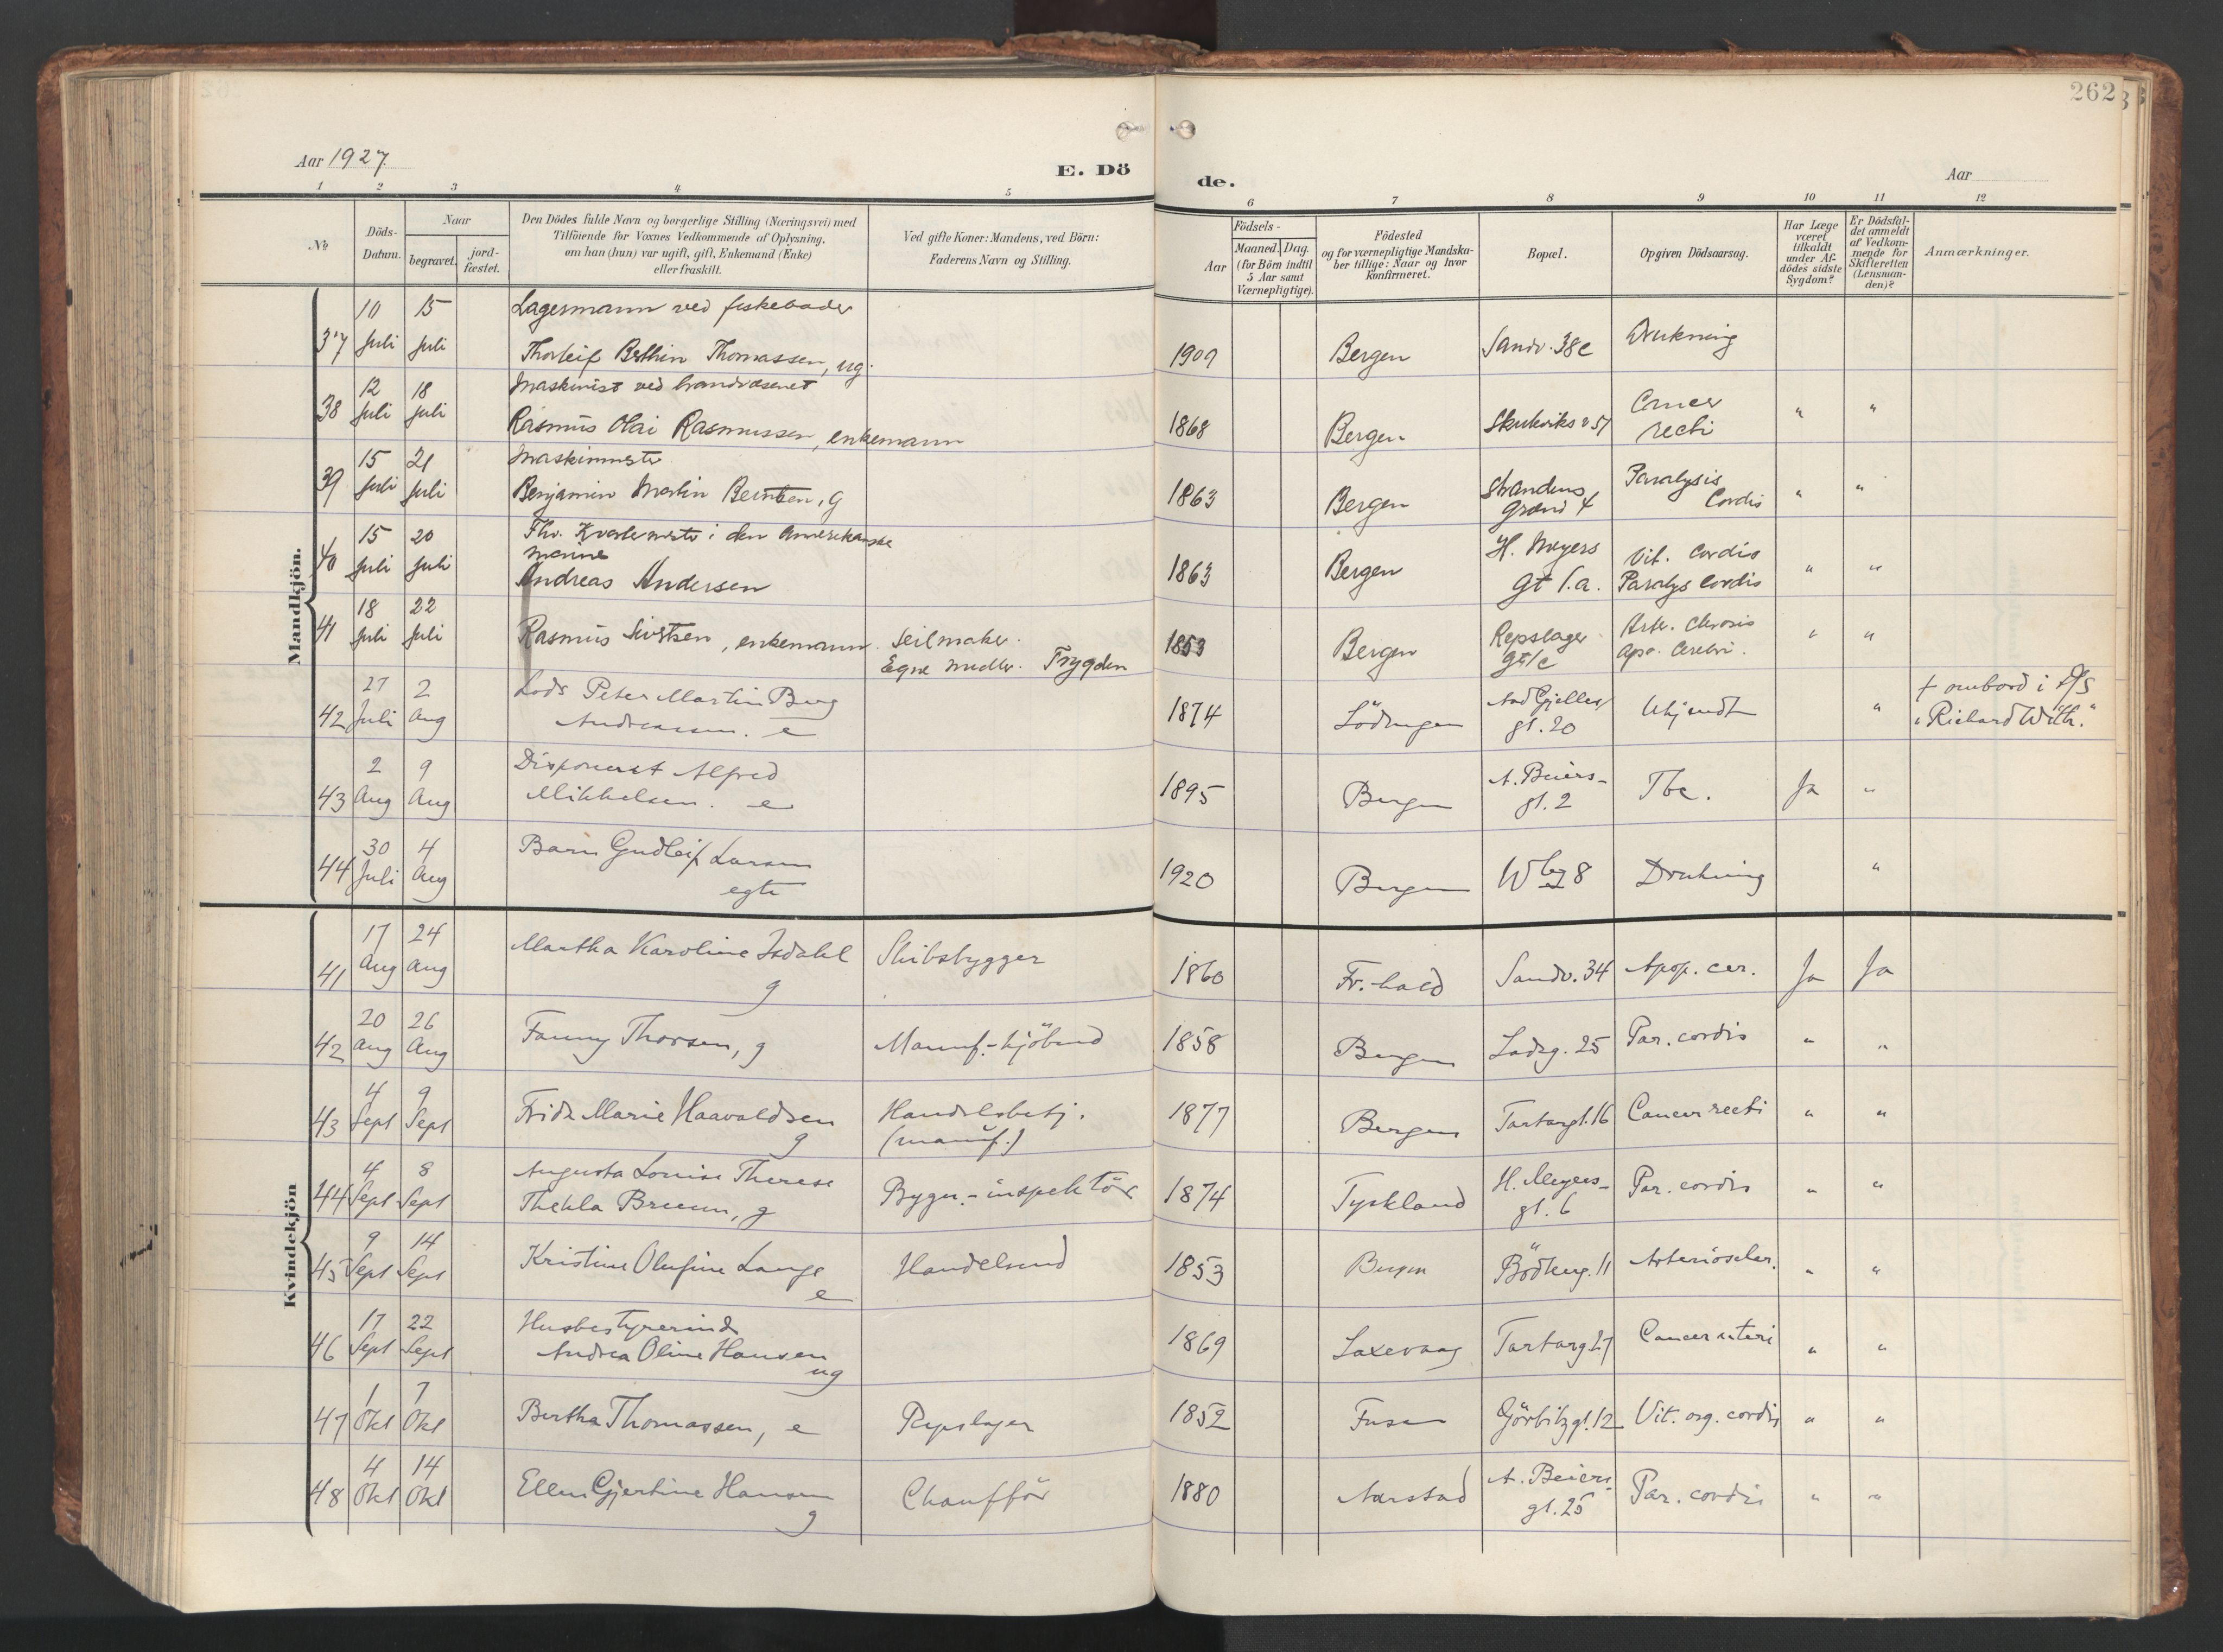 262
Aar 1927
E. Dö
de.
Aar
1 2 3 4 5 6 7 8 9 10 11 12
No
Döds-
Datum.
Naar
begravet.
jord-
fæstet.
Den Dödes fulde Navn og borgerlige Stilling (Næringsvei) med
Tilföiende for Voxnes Vedkommende af Oplysning,
om han (hun) var ugift, gift, Enkemand (Enke)
eller fraskilt.
Ved gifte Koner: Mandens, ved Börn:
Faderens Navn og Stilling.
Födsels-
Aar
Maaned. Dag.
(for Börn indtil
5 Aar samt
Værnepligtige).
Födested
og for værnepligtige Mandska-
ber tillige: Naar og hvor
konfirmeret.
Bopæl.
Opgiven Dödsaarsag.
Har Læge
været
tilkaldt
under Af-
dödes sidste
Sygdom?
Er Dödsfal-
det anmeldt
af Vedkom-
mende for
Skifteretten
(Lensman-
den)?
Anmærkninger.
Mandkjön.
10 15 Lagermann ved fiskebader
37 Juli Juli Thorleif Berthin Thomassen, ug. 1909 Bergen Sandv. 38c Drukning
12 18 Maskinist ved brandvæsenet
38 Juli Juli Rasmus Olai Rasmussen, enkemann 1868 Bergen Skuteviksv 57 Cancer
recti " "
15 21 Maskinmester
39 Juli Juli Benjamin Martin Berntsen, g 1863 Bergen Strandens
Grand 4 Paralysis
Cordis " "
15 20 Fhv. Kvartermester i den Amerikanske
marine
40 Juli Juli Andreas Andersen 1863 Bergen H. Meyers
gt 1.a. Vit. Cordis
Paralys Cordis " "
18 22
41 Juli Juli Rasmus Sivertsen, enkemann. Seilmaker.
Egne midler. Trygden 1853 Bergen Repslager
gt 1c Arter. Clerosis
Apo. Cerebri. " "
27 2 Lods Peter Martin Berg
42 Juli Aug Andreassen. e 1874 Lödingen
gt. 20 Ukjendt " + ombord i D/S
"Richard With."
2 9 Disponent Alfred
43 Aug Aug Mikkelsen. e 1895 Bergen A. Beiers-
gt. 2 Tbc. Ja "
30 4 Barn Gudleif Larsen
44 Juli Aug egte 1920 Bergen W 8 Drukning "
Kvindekjön
17 24
41 Aug Aug Martha Karoline Isdahl
g Skibsbygger 1860 Fr.-hald Sandv. 34 Apop. cer. Ja Ja
20 26
42 Aug Aug Fanny Thorsen, g Manuf.-kjöbmd 1858 Bergen Ladeg. 25 Par. cordis " "
4 9
43 Sept Sept Frida Marie Haavaldsen
g Handelsbetj.
(manuf.) 1877 Bergen Tartargt. 16 Cancer recti " "
4 8 Augusta Louise Therese
44 Sept Sept Thekla Breuun, g Bygn.-inspektör 1874 Tyskland H. Meyers-
gt. 6 Par. cordis " "
9 14
45 Sept Sept Kristine Olufine Lange
e Handelsmd 1853 Bergen Bödkerg. 11 Arterioscler. " "
17 22 Husbestyrerinde
46 Sept Sept Andrea Oline Hansen
ug 1869 Laxevaag Tartargt. 7 Cancer uteri " "
1 7
47 Okt Okt Bertha Thomassen, e Repslager 1852 Fusa Görbitzgt. 12 Vit. org. cordis " "
4 14
48 Okt Okt Ellen Gjertine Hansen
g Chaufför 1880 Aarstad A. Beiers-
gt. 25 Par. cordis " "